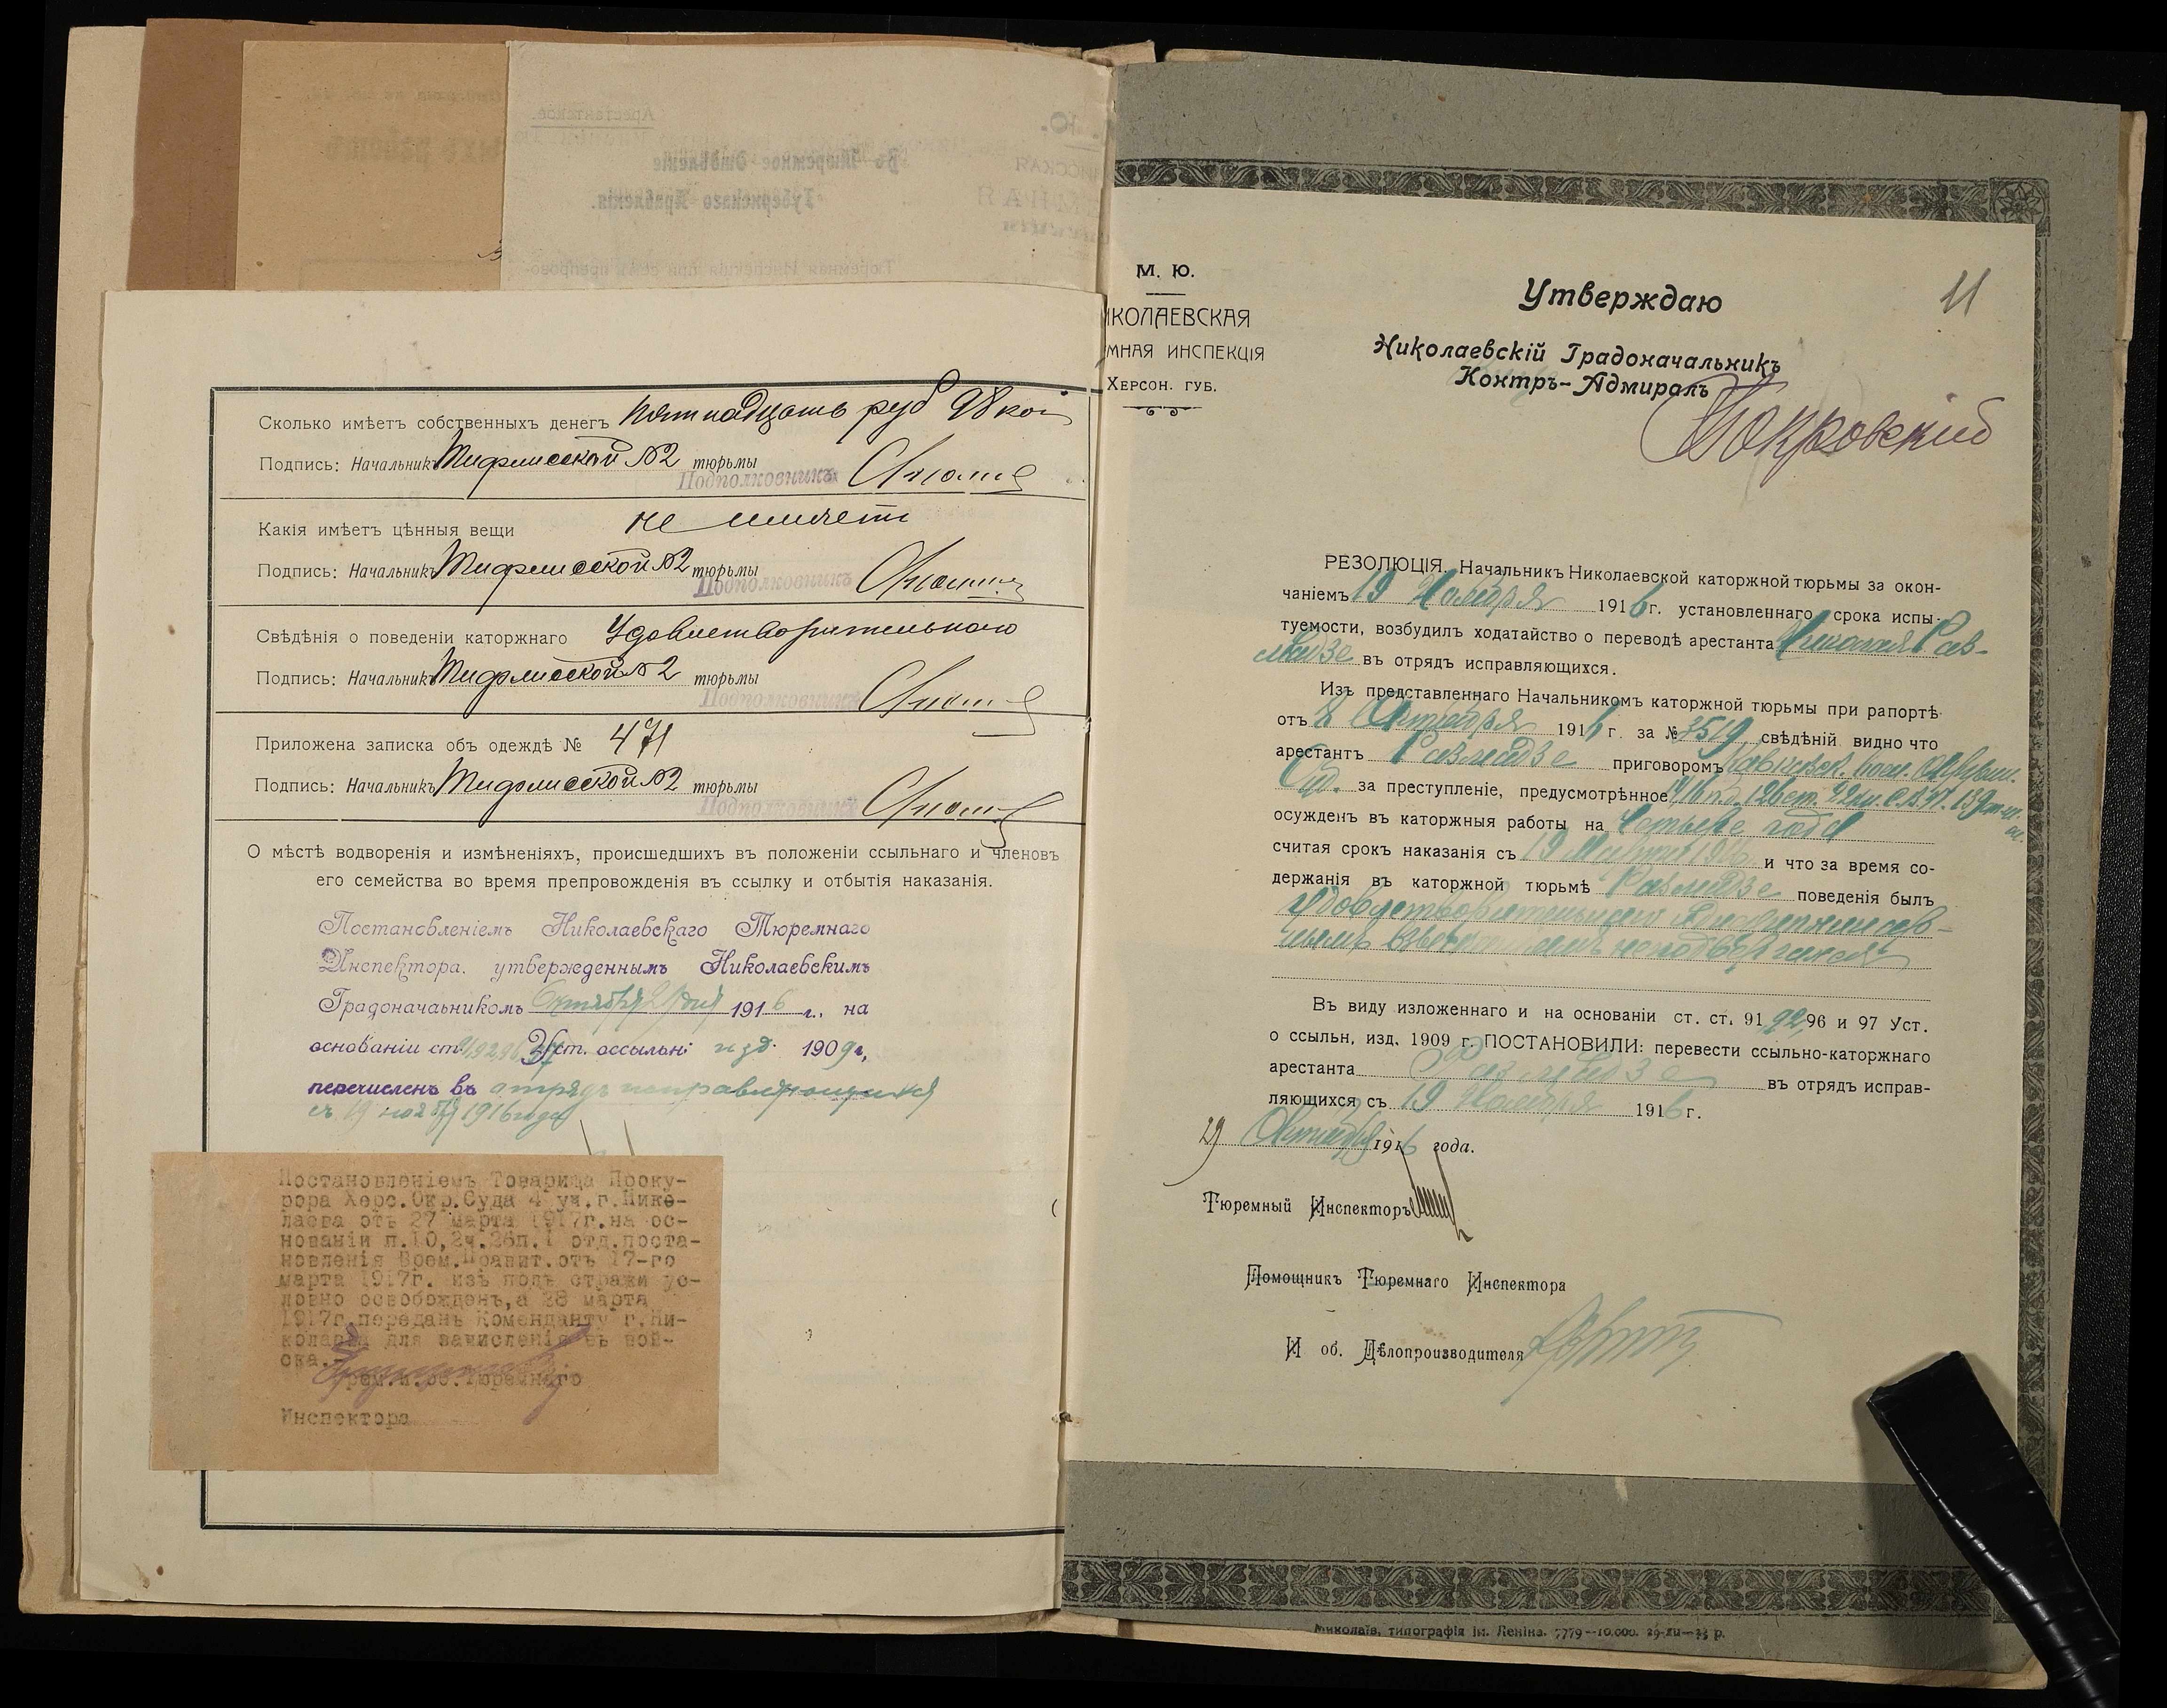 Сколько имѣетъ собственныхъ денегъ пятнадцать руб 98 коп
Подпись: Начальникъ Тифлисской №2 тюрьмы
Подполковникъ
Какія имѣетъ цѣнныя вещи не имѣетъ
Подпись: Начальникъ Тифлисской №2 тюрьмы
Подполковникъ
Свѣдѣнія о поведеніи каторжнаго Удовлетворительнаго
Подпись: Начальникъ Тифлисской №2 тюрьмы
Подполковникъ
Приложена записка объ одеждѣ № 471
Подпись: Начальникъ Тифлисской №2 тюрьмы
Подполковникъ
О мѣстѣ водворенія и измѣненіяхъ, происшедшихъ въ положеніи ссыльнаго и членовъ
его семейства во время препровожденія въ ссылку и отбытія наказанія.
Постановленіемъ Николаевскаго Тюремнаго
Инспектора. утвержденнымъ Николаевскимъ
Градоначаьникомъ Октября дня 1916 г., на
основаніи ст. Уст. оссыльн: изд. 1909г,
перечисленъ въ отрядъ исправляющихся
съ 19 ноября 1916 года
Постановленіемъ Товарища Проку-
рора Херс.Окр.Суда 4 уч.г.Нико-
лаева отъ 27 марта 1917г.на ос-
нованіи п.10,2ч.26п.1 отд.поста-
новленія Врем.Правит.отъ 17-го
марта 1917г. изъ подъ стражи ус-
ловно освобожденъ,а 28 марта
1917г.переданъ Коменданту г.Ни-
колаева для зачисленія въ вой-
ска.
Врем.и.об.Тюремнаго
Инспектора
М. Ю.
ИКОЛАЕВСКАЯ
МНАЯ ИНСПЕКЦІЯ
Херсон. губ.
11
Утверждаю
Николаевскій Градоначальникъ
Контръ-Адмиралъ
Покровскій
РЕЗОЛЮЦІЯ. Начальникъ Николаевской каторжной тюрьмы за окон-
чаніемъ 19 Ноября 1916 г. установленнаго срока испы-
туемости, возбудилъ ходатайство о переводѣ арестанта Николая Раз-
мадзе въ отрядъ исправляющихся.
Изъ представленнаго Начальникомъ каторжной тюрьмы при рапортѣ
отъ Октября 1916 г. за № 3519 свѣдѣній видно что
арестантъ Размадзе приговоромъ Кавказск. Воен. Окружн.
Суд. за преступленіе, предусмотрѣнное
осужденъ въ каторжныя работы на Четыре года
считая срокъ наказанія съ 19 1916 и что за время со-
держанія въ каторжной тюрьмѣ Размадзе поведенія былъ
удовлетворительнаго дисциплинар-
нымъ взысканіямъ неподвергался
Въ виду изложеннаго и на основаніи ст. ст. 91 92, 96 и 97 Уст.
о ссыльн, изд. 1909 г. ПОСТАНОВИЛИ: перевести ссыльно-каторжнаго
арестанта Размадзе въ отрядъ исправ-
ляющихся съ 19 Ноября 1916 г.
29 Октября 1916 года.
Тюремный Инспекторъ
Помощникъ Тюремнаго Инспектора
И об. Дѣлопроизводителя
Миколаїв, типографія ім. Леніна. 7779—10.000.